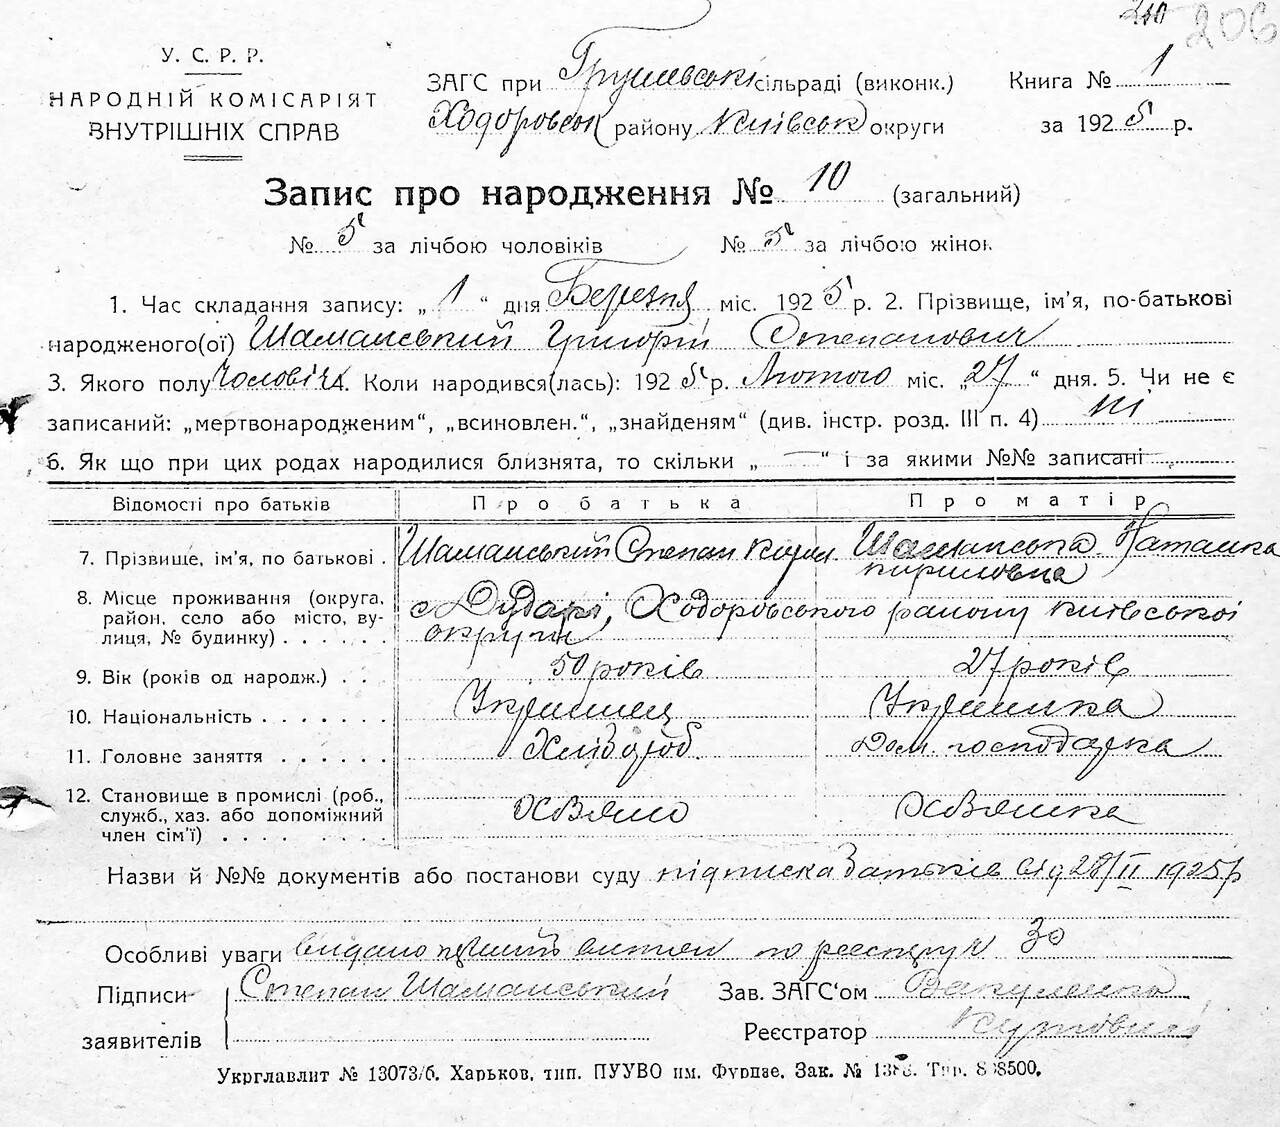 210 206
У. С. Р. Р.
НАРОДНІЙ КОМІСАРІЯТ
ВНУТРІШНІХ СПРАВ
ЗАГС при Грушевські сільраді (виконк.)
Ходоровськ району Київськ округи
Книга № 1
за 1925 р.
Запис про народження № 10 (загальний)
№ 5 за лічбою чоловіків № 5 за лічбою жінок
1. Час складання запису: „ 1 “ дня Березня міс. 1925 р. 2. Прізвище, ім’я, по-батькові
народженого(ої) Шаманський Григорій Степанович
3. Якого полу чоловіч 4. Коли народився(лась): 1925 р. Лютого міс. „27“ дня. 5. Чи не є
записаний: „мертвонародженим“, „всиновлен.“, „знайденям“ (див. інстр. розд. III п. 4) ні
6. Як що при цих родах народилися близнята, то скільки „ — “ і за якими №№ записані —
Відомості про батьків Про батька Про матір
7. Прізвище, ім’я, по батькові . Шаманський Степан Кирил. Шаманська Наталка
кириловна
8. Місце проживання (округа, район, село або місто, вулиця, № будинку) . . . . . с Дударі, Ходоровського району Київської
округи
9. Вік (років од народж.) . . 50 років 27 років
10. Національність . . . . . . . Українец Українка
11. Головне заняття . . . . . . Хлібороб. Дом. господарка
12. Становище в промислі (роб., служб., хаз. або допоміжний член сім’ї) . . . . . . . .
Назви й №№ документів або постанови суду підписка батьків від 28/II 1925р
Особливі уваги видано перший витяг по реєстру ч 30
Підписи заявителів Степан Шаманський
Зав. ЗАГС‘ом Вакуленко
Реєстратор
Укрглавліт № 13073/б. Харьков, тип. ПУУВО им. Фрунзе, Зак. №